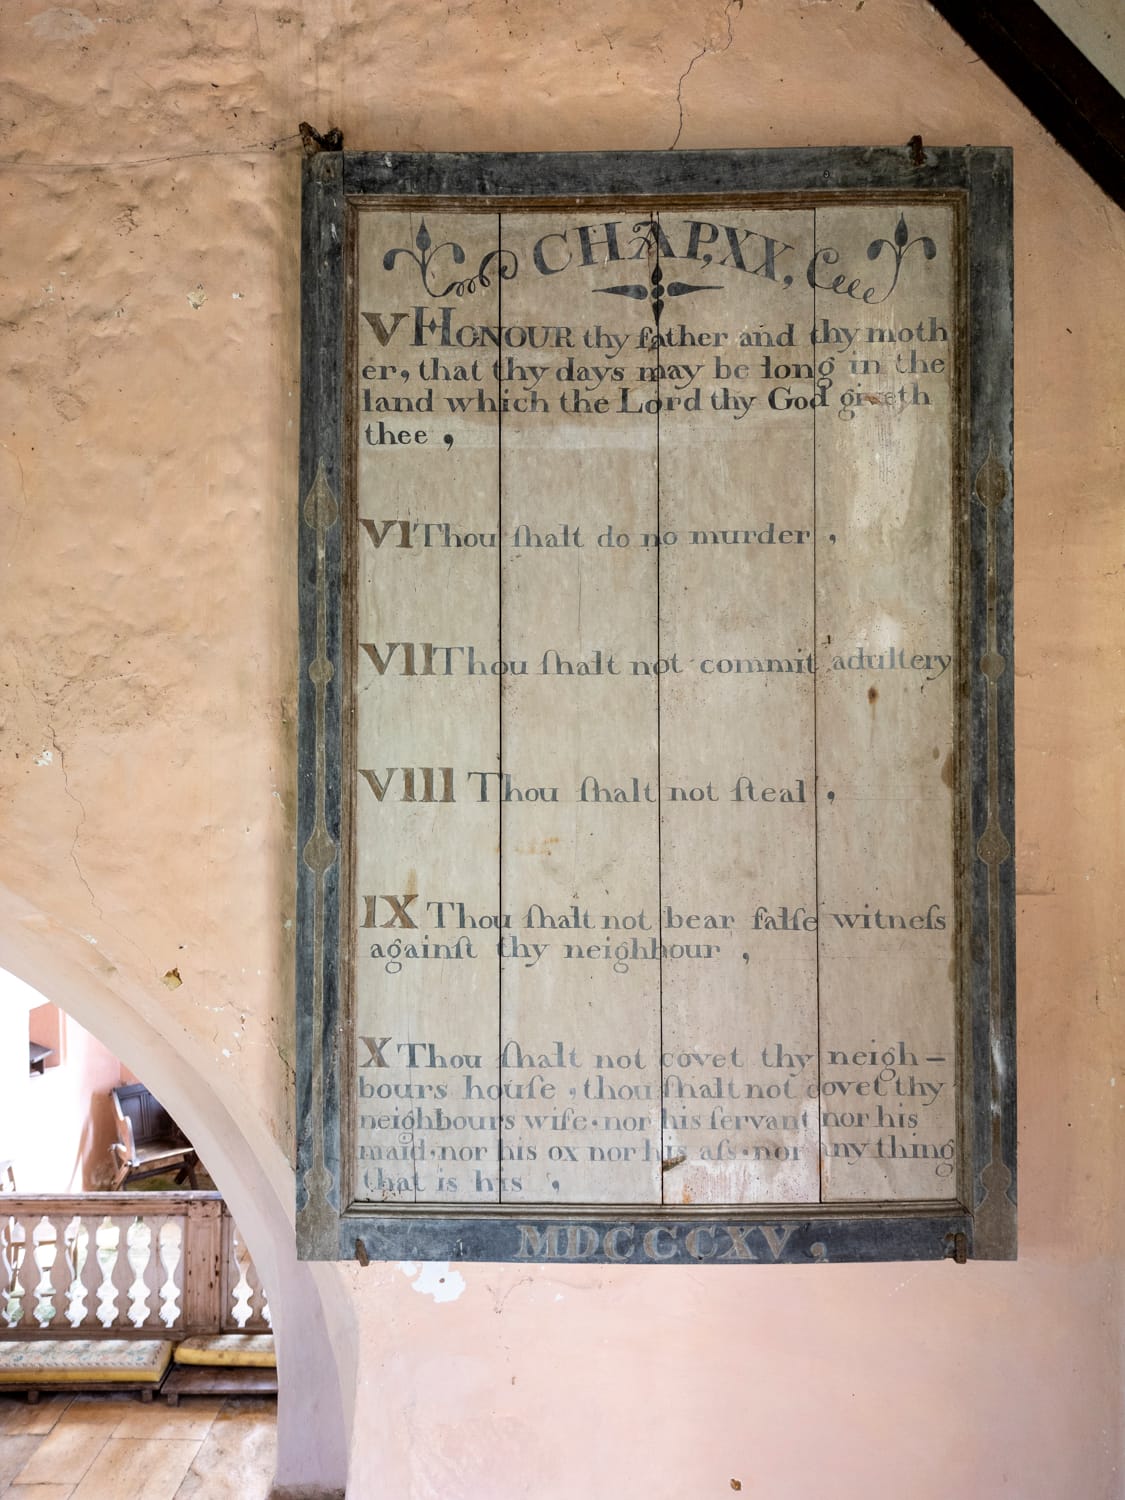 CHAP, XX,
V HONOUR thy father and thy moth
er, that thy days may be long in the
land which the Lord thy God giveth
thee,
VI Thou ſhalt do no murder,
VII Thou ſhalt not commit adultery
VIII Thou ſhalt not ſteal,
IX Thou ſhalt not bear falſe witneſs
againſt thy neighbour,
X Thou ſhalt not covet thy neigh-
bours houſe, thou ſhalt not covet thy
neighbours wife·nor his ſervant nor his
maid·nor his ox nor his aſs·nor any thing
that is his,
MDCCCXV,